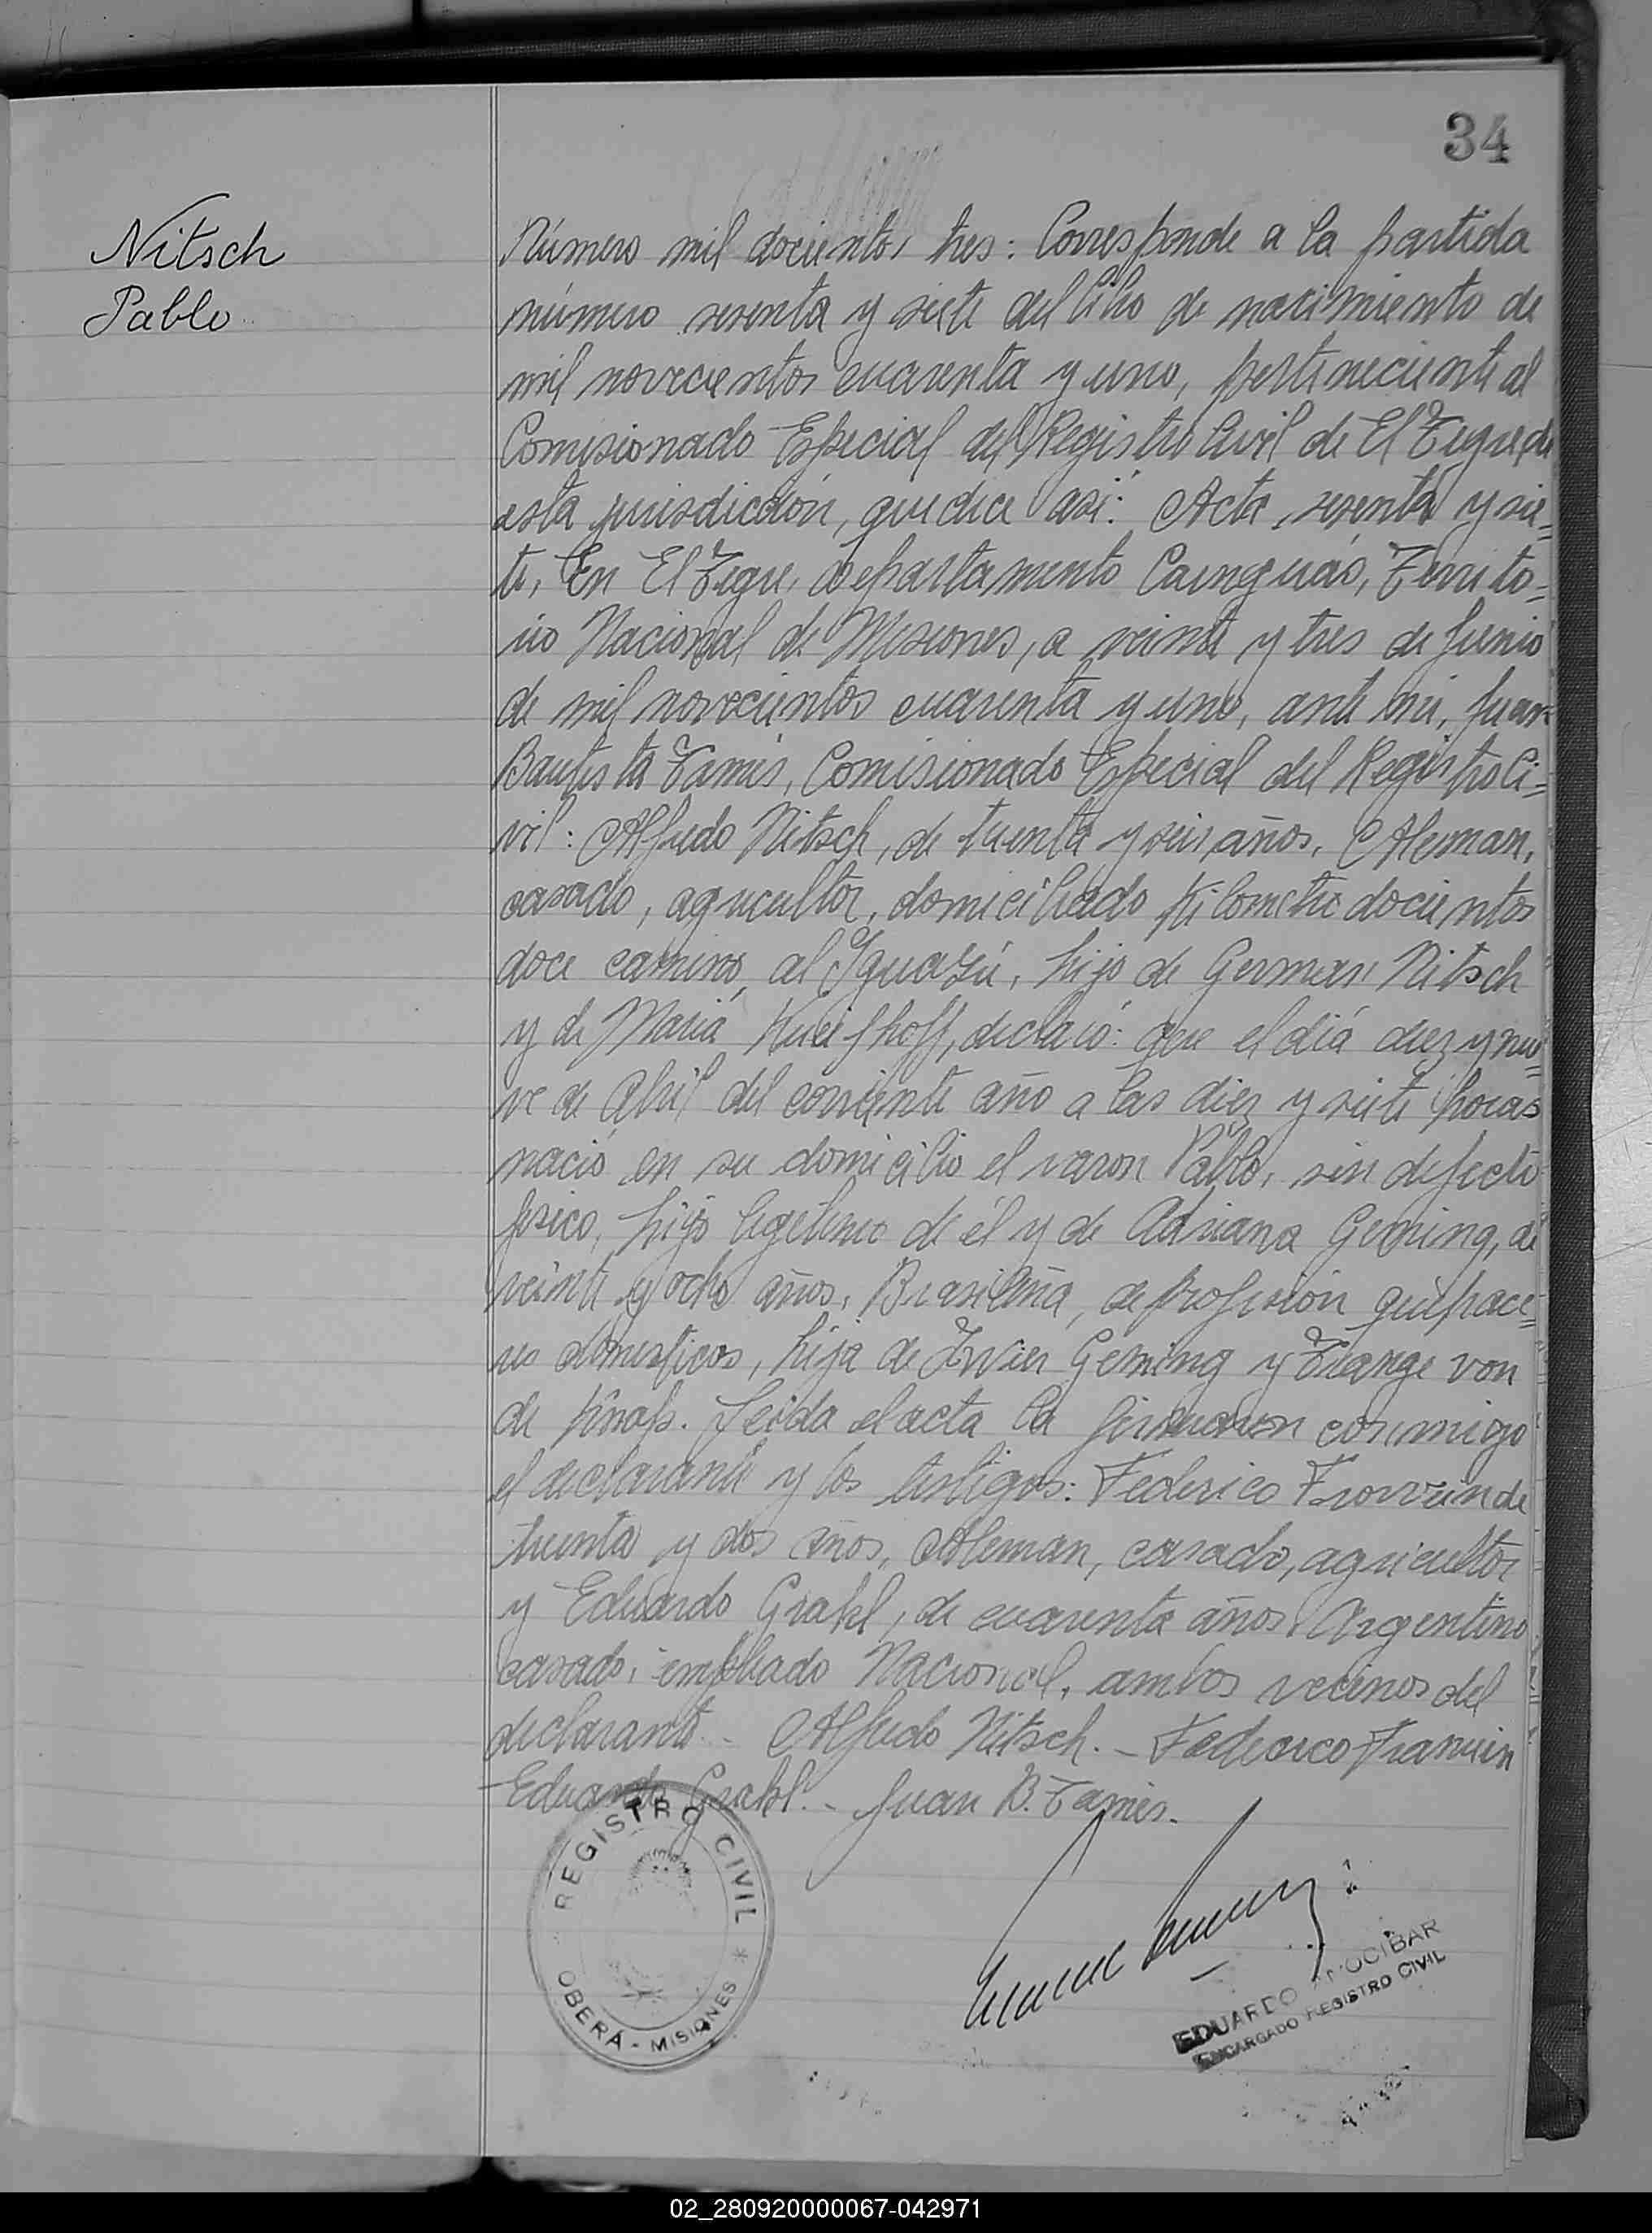 34
Nitsch
Pablo
Número mil docientos tres: Corresponde a la partida
número sesenta y siete del libro de nacimiento de
mil novecientos cuarenta y uno, perteneciente al
Comisionado Especial del Registro Civil de El Tigre, de
esta jurisdicción, que dice así: Acta sesenta y sie=
te, En El Tigre, departamento Cainguás, Territo=
rio Nacional de Misiones, a veinte y tres de Junio
de mil novecientos cuarenta y uno, ante mi, Juan
Bautista Tamis, Comisionado Especial del Registro Ci=
vil: Alfredo Nitsch, de treinta y seis años, Aleman,
casado, agricultor, domiciliado Kilometro docientos
doce camino al Iguazú, hijo de German Nitsch
y de María declaró: que el diá diez y nue=
ve de Abril del corriente año a las diez y siete horas
nació en su domicilio el varon Pablo, sin defecto
fisico, hijo legitimo de él y de Adriana Gening, de
veinte y ocho años, Brasileña, de profesión quehace=
res domesticos, hija de Gening y von
de Leida el acta la firmaron conmigo
el declarante y los testigos: Federico de
treinta y dos años, Aleman, casado, agricultor
y Eduardo Grahl, de cuarenta años Argentino
casado, empleado Nacional, ambos vecinos del
declarante.- Alfredo Nitsch.- Federico
Eduardo Grahl.- Juan B. Tamis.
REGISTRO CIVIL * OBERÁ - MISIONES
EDUARDO ANOCIBAR
ENCARGADO REGISTRO CIVIL
02_280920000067-042971